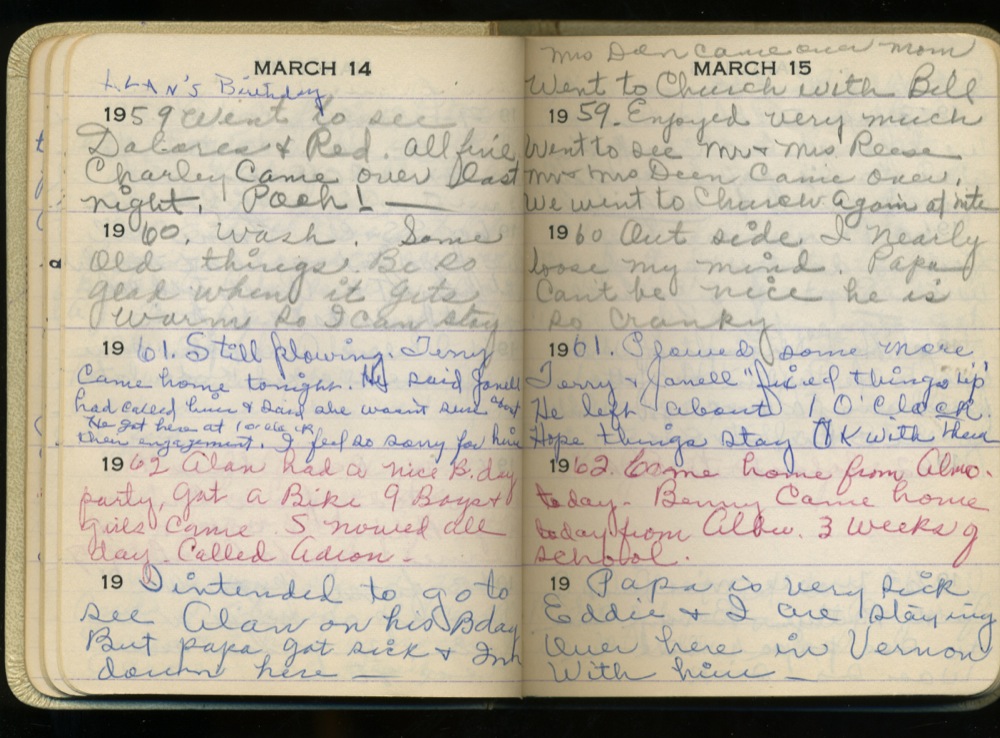 MARCH 14
ALAN'S Birthday
1959 Went to see
Dalores & Red. all fine
Charley Came over last
night. Pooh! —
1960. Wash. Same
Old things. Be so
glad when it gets
warm so I can stay
1961. Still plowing. Terry
Came home tonight. He said Janell
had called him & said she wasn't sure about
He got here at 1 o'clock
their engagement. I feel so sorry for him
1962 Alan had a nice B.day
party, Got a Bike 9 Boys &
girls came. Snowed all
day. Called
19 I intended to go to
see Alan on his Bday
But papa got sick & Im
down here —
Mrs Deen came over Mom
MARCH 15
Went to Church with Bill
1959. Enjoyed very much
Went to see Mr & Mrs Reese
Mr & Mrs Deen Came over,
We went to Church Again at nite
1960 Out side. I nearly
loose my mind. Papa
Can't be nice he is
so cranky
1961. Plowed some more
Terry & Janell "fixed things up"
He left about 1 O'Clock.
Hope things stay OK with them
1962. Come home from Almo.
today. Benny Came home
today from Albu. 3 weeks of
school.
19 Papa is very sick
Eddie & I are staying
Over here in Vernon
With him —